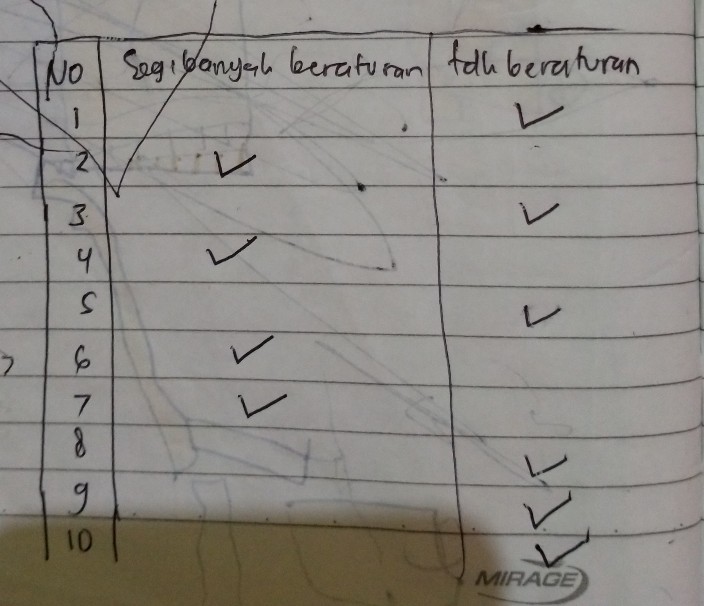 No Segibanyak beraturan tdk beraturan
1 ✓
2 ✓
3 ✓
4 ✓
5 ✓
6 ✓
7 ✓
8 ✓
9 ✓
10 ✓
MIRAGE